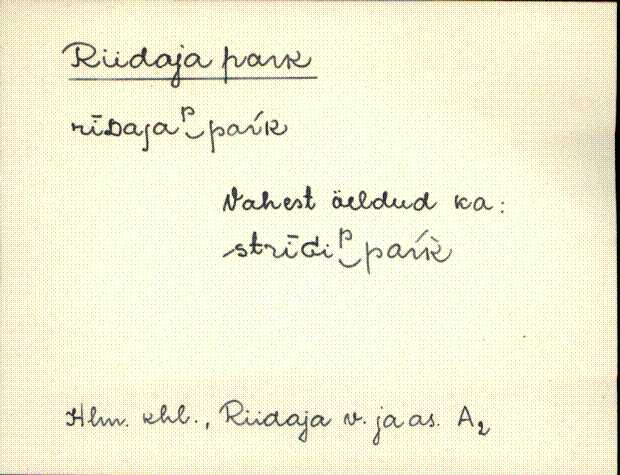 Riidaja park
rīᴅajaᵖ‿par̆k
Vahest öeldud ka:
strīᴅiᵖ‿par̆k
Hlm. khk., Riidaja v. ja as. A₂